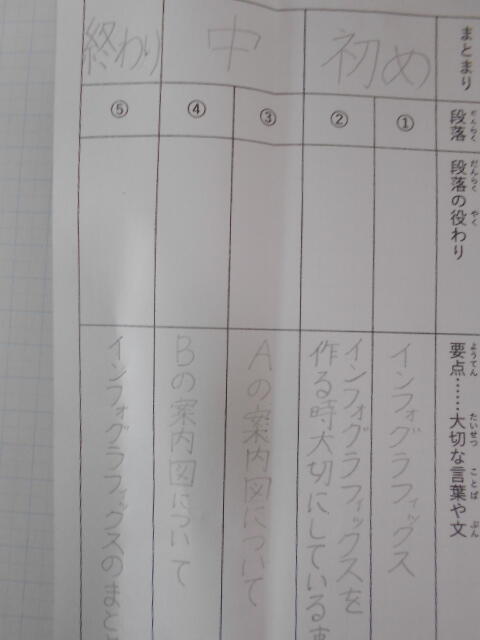 まとまり
初め
中
終わり
段落
だんらく
①
②
③
④
⑤
段落の役わり
だんらく
やく
要点……大切な言葉や文
ようてん
たいせつ
ことば
ぶん
インフォグラフィックス
インフォグラフィックスを
作る時大切にしている
Aの案内図について
Bの案内図について
インフォグラフィックスのまと